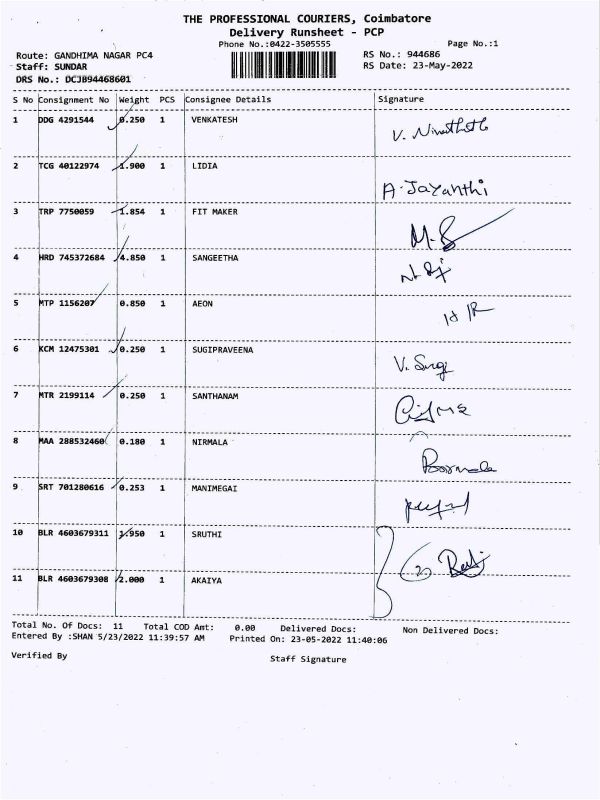 THE PROFESSIONAL COURIERS, Coimbatore
Delivery Runsheet - PCP
Phone No.:0422-3505555
Page No.:1
Route: GANDHIMA NAGAR PC4
RS No.: 944686
Staff: SUNDAR
RS Date: 23-May-2022
DRS No.: DCJB94468601
S No Consignment No Weight PCS Consignee Details Signature
1 DDG 4291544 0.250 1 VENKATESH
2 TCG 40122974 1.900 1 LIDIA A. Jayanthi
3 TRP 7750059 1.854 1 FIT MAKER M.S
4 HRD 745372684 4.850 1 SANGEETHA
5 MTP 1156207 0.850 1 AEON
6 KCM 12475301 0.250 1 SUGIPRAVEENA V. Sugi
7 MTR 2199114 0.250 1 SANTHANAM
8 MAA 288532460 0.180 1 NIRMALA
9 SRT 701280616 0.253 1 MANIMEGAI
10 BLR 4603679311 1.950 1 SRUTHI
11 BLR 4603679308 2.000 1 AKAIYA
Total No. Of Docs: 11 Total COD Amt: 0.00 Delivered Docs: Non Delivered Docs:
Entered By :SHAN 5/23/2022 11:39:57 AM Printed On: 23-05-2022 11:40:06
Verified By Staff Signature